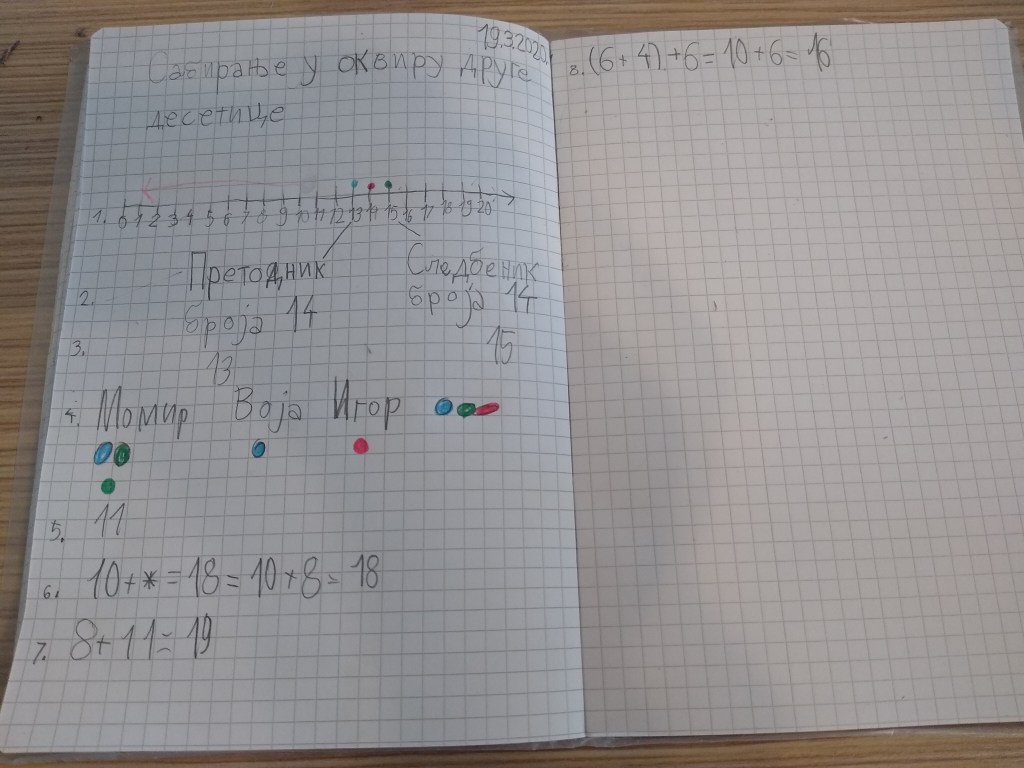 19.3.2020.
Сабирање у оквиру друге
десетице
1. 0 1 2 3 4 5 6 7 8 9 10 11 12 13 14 15 16 17 18 19 20
Претодник
броја 14
13
Следбеник
броја 14
15
2.
3.
4. Момир Воја Игор
5. 11
6. 10+*=18=10+8=18
7. 8+11=19
8. (6+4)+6=10+6=16